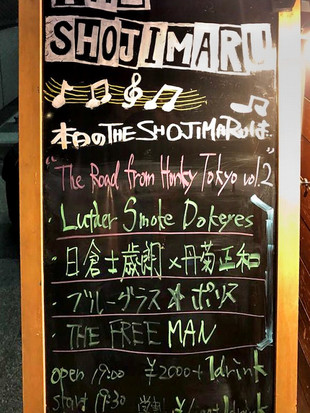 THE
SHOJIMARU
本日のTHE SHOJIMARUは‥
"The Road from Honky Tokyo vol.2"
・Luther Smoke Dokeyes
・日倉士歳朗×丹菊正和
・ブルーグラス★ポリス
・THE FREE MAN
open 19:00 ¥2000+1drink
start 19:30